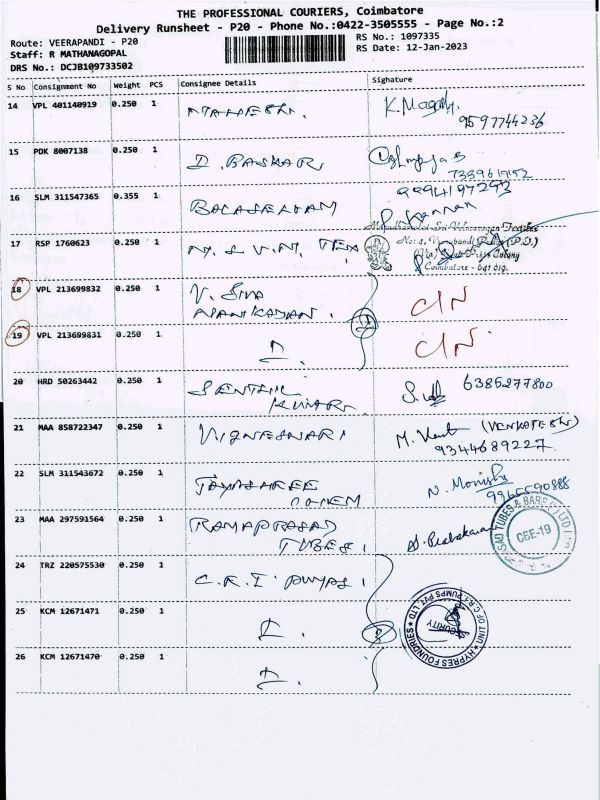 THE PROFESSIONAL COURIERS, Coimbatore
Delivery Runsheet - P20 - Phone No.:0422-3505555 - Page No.:2
Route: VEERAPANDI - P20
RS No.: 1097335
Staff: R MATHANAGOPAL
RS Date: 12-Jan-2023
DRS No.: DCJB109733502
S No Consignment No Weight PCS Consignee Details Signature
14 VPL 401140919 0.250 1 K.
9597744236
15 PDK 8007138 0.250 1 D. BASKAR
16 SLM 311547365 0.355 1 BALASELVAM P. Kannan
17 RSP 1760623 0.250 1 M. S. V. M. TEX
No: 4, Veerapandi
Coimbatore - 641 019.
18 VPL 213699832 0.250 1 V. SIVA C/N
MANIKADAN.
19 VPL 213699831 0.250 1 C/N
20 HRD 50263442 0.250 1 SENTHIL 6385277800
KUMAR
21 MAA 858722347 0.250 1 VIGNESWARI M. (VENKATESH)
9344689227
22 SLM 311543672 0.250 1 JAYASHREE N. Monisha
9965590888
23 MAA 297591564 0.250 1 RAMAPRASAD S. Prabakaran
TUBES.
SAD TUBES & BARS (P) LTD
CBE-19
24 TRZ 220575530 0.250 1 C.R.I PUMPS
25 KCM 12671471 0.250 1
UNIT OF C.R.I. PUMPS PVT. LTD
SECURITY
HYPRES FOUNDRIES
26 KCM 12671470 0.250 1